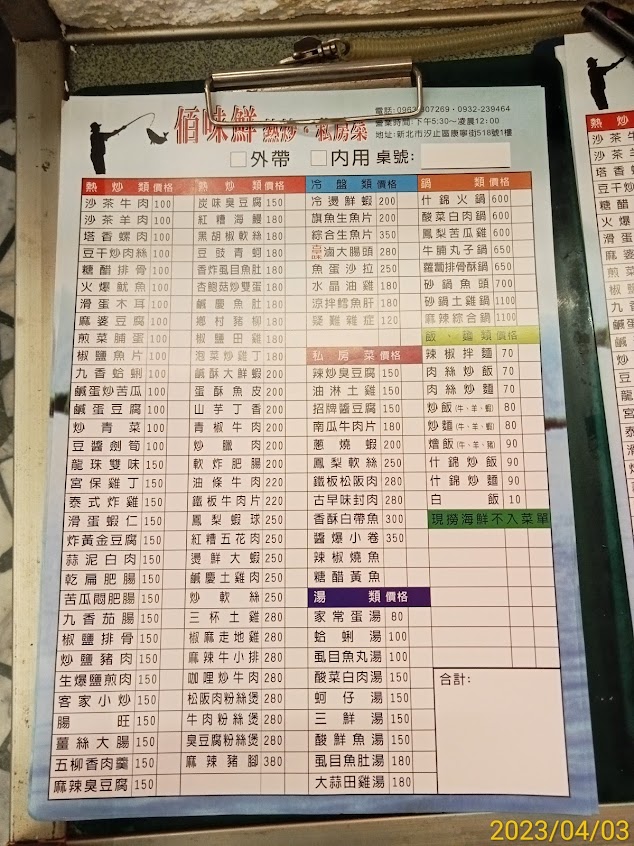 佰味鮮 熱炒・私房菜
電話: 0932-239464
營業時間:下午5:30～凌晨12:00
地址:新北市汐止區康寧街518號1樓
外帶 內用 桌號:
熱炒類 價格
沙茶牛肉 100
沙茶羊肉 100
塔香螺肉 100
豆干炒肉絲 100
糖醋排骨 100
火爆魷魚 100
滑蛋木耳 100
麻婆豆腐 100
煎菜脯蛋 100
椒鹽魚片 100
九香蛤蜊 100
鹹蛋炒苦瓜 100
鹹蛋豆腐 100
炒青菜 100
豆醬劍筍 100
龍珠雙味 150
宮保雞丁 150
泰式炸雞 150
滑蛋蝦仁 150
炸黃金豆腐 150
蒜泥白肉 150
乾扁肥腸 150
苦瓜悶肥腸 150
九香茄腸 150
椒鹽排骨 150
炒鹽豬肉 150
生爆鹽煎肉 150
客家小炒 150
腸旺 150
薑絲大腸 150
五柳香肉羹 150
麻辣臭豆腐 150
熱炒類 價格
炭味臭豆腐 150
紅糟海鰻 180
黑胡椒軟絲 180
豆豉青蚵 180
香炸虱目魚肚 180
杏鮑菇炒雙蛋 180
鹹慶魚肚 180
鄉村豬柳 180
椒鹽田雞 180
泡菜炒雞丁 180
鹹酥大鮮蝦 200
蛋酥魚皮 200
山芋丁香 200
青椒牛肉 200
炒臘肉 200
軟炸肥腸 200
油條牛肉 220
鐵板牛肉片 220
鳳梨蝦球 250
紅糟五花肉 250
燙鮮大蝦 250
鹹慶土雞肉 250
炒軟絲 250
三杯土雞 280
椒麻走地雞 280
麻辣牛小排 280
咖哩炒牛肉 280
松阪肉粉絲煲 280
牛肉粉絲煲 280
臭豆腐粉絲煲 280
麻辣豬腳 380
冷盤類 價格
冷燙鮮蝦 200
旗魚生魚片 200
綜合生魚片 350
滷大腸頭 280
魚蛋沙拉 250
水晶油雞 180
涼拌鱈魚肝 180
疑難雜症 120
私房菜 價格
辣炒臭豆腐 150
油淋土雞 150
招牌醬豆腐 150
南瓜牛肉片 180
蔥燒蝦 200
鳳梨軟絲 250
鐵板松阪肉 280
古早味封肉 280
香酥白帶魚 300
醬爆小卷 350
辣椒燒魚
糖醋黃魚
湯類 價格
家常蛋湯 80
蛤蜊湯 100
虱目魚丸湯 100
酸菜白肉湯 150
蚵仔湯 150
三鮮湯 150
酸鮮魚湯 150
虱目魚肚湯 180
大蒜田雞湯 180
鍋類 價格
什錦火鍋 600
酸菜白肉鍋 600
鳳梨苦瓜雞 600
牛腩丸子鍋 650
蘿蔔排骨酥鍋 650
砂鍋魚頭 700
砂鍋土雞鍋 1100
麻辣綜合鍋 1100
飯、麵類 價格
辣椒拌麵 70
肉絲炒飯 70
肉絲炒麵 70
炒飯(牛、羊、蝦) 80
炒麵(牛、羊、蝦) 80
燴飯(牛、羊、豬) 90
什錦炒飯 90
什錦炒麵 90
白飯 10
現撈海鮮不入菜單
合計:
2023/04/03